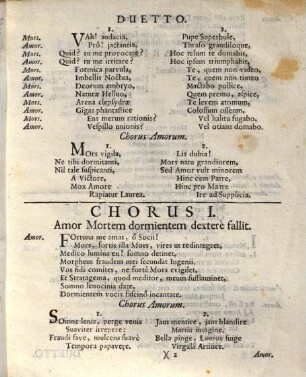 DUETTO.
1. 2.
Mors. VAh! audacia, Pape Superbule,
Amor. Pro! jactantia, Thraso grandiloque,
Mors. Quid? tu me provocare? Hoc telum te domabit,
Amor. Quid? tu me irritare? Hoc ipsum triumphabit,
Mors. Formica parvula, Te, quem non video,
Amor. Imbellis Noctua, Te, quem non timeo
Mors. Deorum embryo, Mactabo pollice,
Amor. Naturæ Helluo, Quem premo, aspice,
Mors. Arena clepsydræ Te leteris atomum,
Amor. Gigas phantasticè Colossum osseum.
Mors. Ens merum rationis? Vel halitu fugabo.
Amor. Vespillo unionis? Vel otians domabo.
Chorus Amorum.
1. 2.
MOrs vigula, Lis dubia!
Ne tibi dormitanti, Mors nato grandiorem,
Nil tale suspicanti, Sed Amor vult minorem
A Victore, Hinc cum Patre,
Mox Amore Hinc pro Matre
Rapiatur Laurea. Ire ad Supplicia.
CHORUS I.
Amor Mortem dormientem dexterè fallit.
Amor. FOrtuna me amat, ô Socii!
Mors, fortis illa Mors, vires ut redintegret,
Medico lumina en! somno detinet,
Morpheus fraudem mei secundat Ingenii.
Vos fidi comites, ne fortè Mors evigilet,
Et Stratagema, quod meditor, meum sufflaminet,
Somno lenocinia date,
Dormientem vocis fascino incantate.
Chorus Amorum.
1. 2.
SOmne leniè, perge venis Jam mentire, jam blandire
Suaviter irrepere: Martia imagine,
Fraudi fave, mulcens suave Bella pinge, Lauros finge
Tempora papavere. Virgula Artifice.
)( 2 Amor.